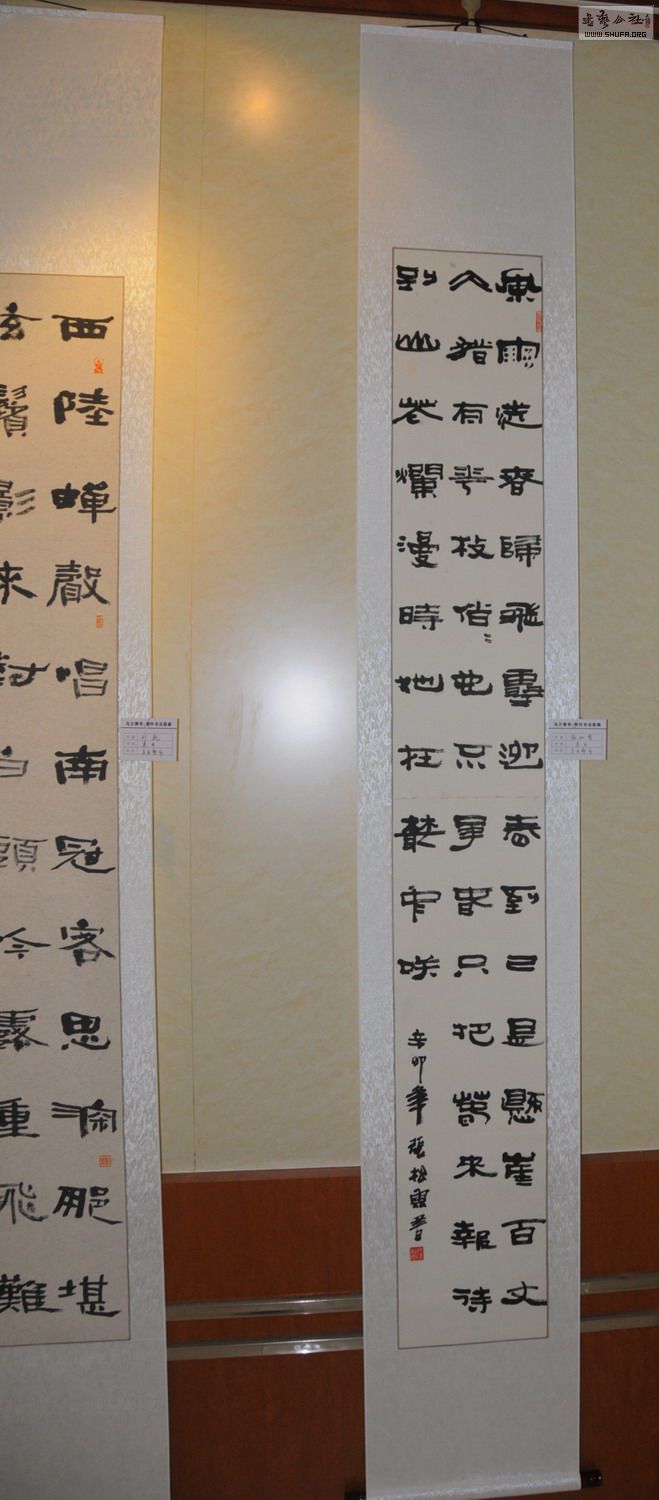 風雨送春歸飛雪迎春到已是懸崖百丈
仌猶有花枝俏〻也不爭春只把春來報待
到山花爛漫時她在叢中咲
辛卯年張松
西陸蟬聲唱南冠客思深那堪
玄鬢影來對白頭吟露重飛難
WWW.SHUFA.ORG